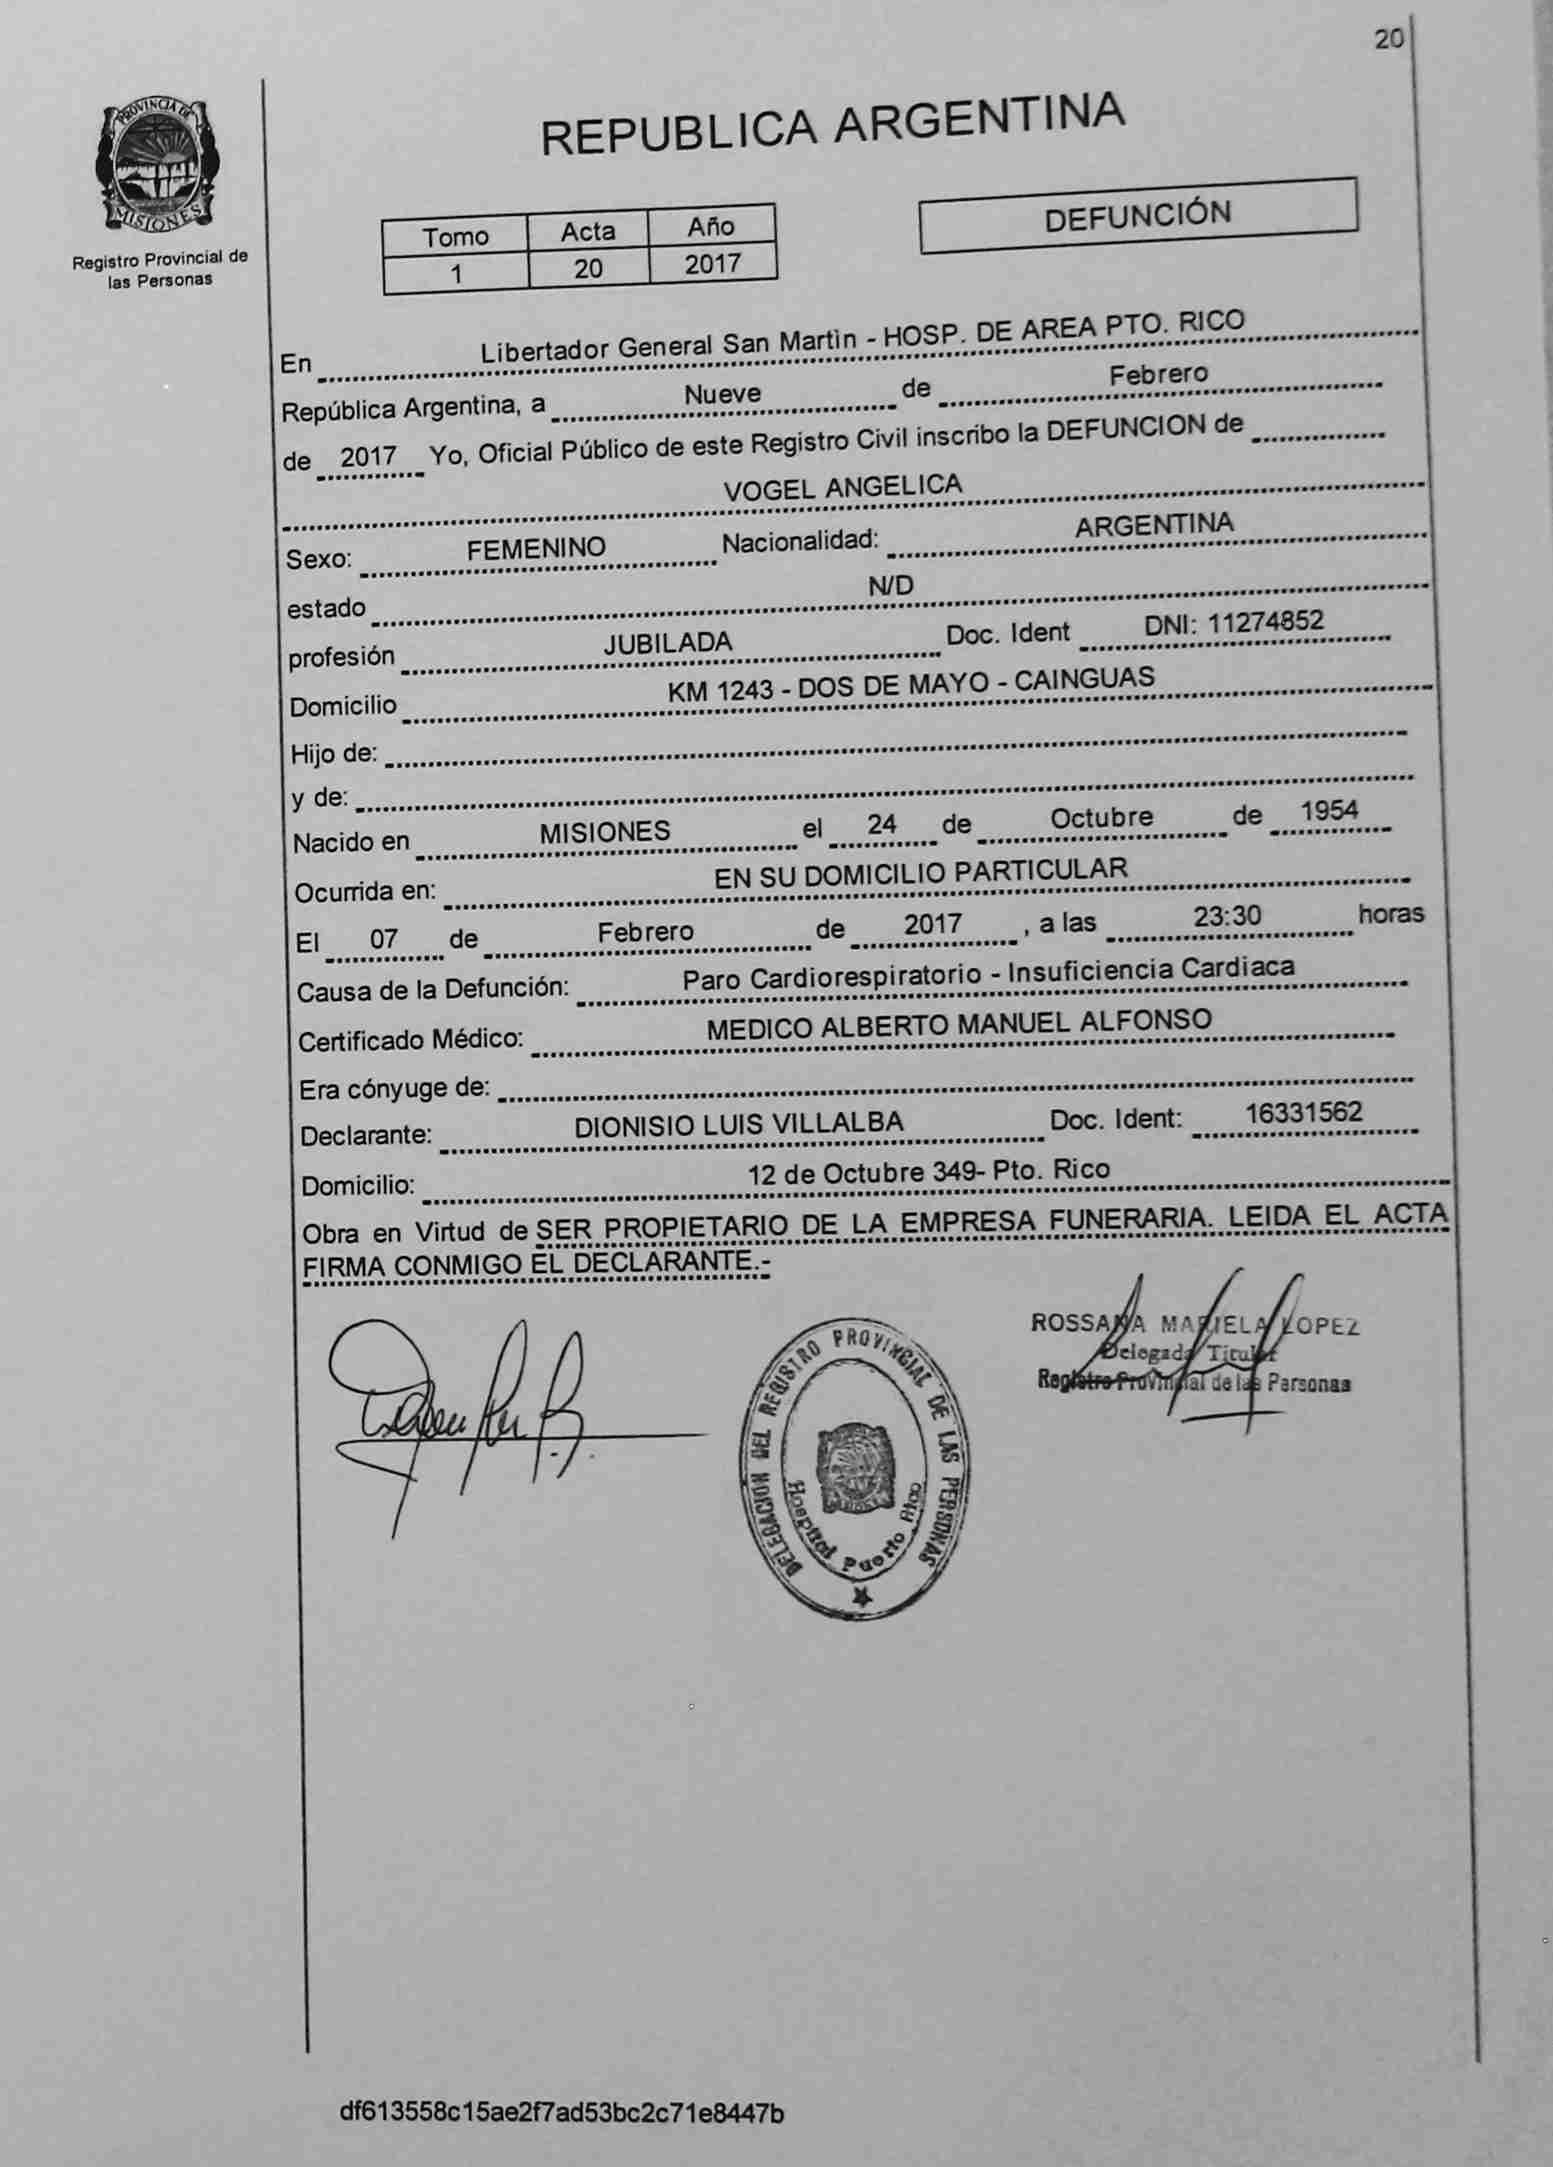 20
PROVINCIA DE
MISIONES
Registro Provincial de
las Personas
REPUBLICA ARGENTINA
Tomo Acta Año
1 20 2017
DEFUNCIÓN
En Libertador General San Martìn - HOSP. DE AREA PTO. RICO
República Argentina, a Nueve de Febrero
de 2017 Yo, Oficial Público de este Registro Civil inscribo la DEFUNCION de
VOGEL ANGELICA
Sexo: FEMENINO Nacionalidad: ARGENTINA
estado N/D
profesión JUBILADA Doc. Ident DNI: 11274852
Domicilio KM 1243 - DOS DE MAYO - CAINGUAS
Hijo de:
y de:
Nacido en MISIONES el 24 de Octubre de 1954
Ocurrida en: EN SU DOMICILIO PARTICULAR
El 07 de Febrero de 2017 , a las 23:30 horas
Causa de la Defunción: Paro Cardiorespiratorio - Insuficiencia Cardiaca
Certificado Médico: MEDICO ALBERTO MANUEL ALFONSO
Era cónyuge de:
Declarante: DIONISIO LUIS VILLALBA Doc. Ident: 16331562
Domicilio: 12 de Octubre 349- Pto. Rico
Obra en Virtud de SER PROPIETARIO DE LA EMPRESA FUNERARIA. LEIDA EL ACTA
FIRMA CONMIGO EL DECLARANTE.-
DELEGACION DEL REGISTRO PROVINCIAL DE LAS PERSONAS
Hospital Puerto Rico
ROSSANA MARIELA LOPEZ
Delegada Titular
Registro Provincial de las Personas
df613558c15ae2f7ad53bc2c71e8447b